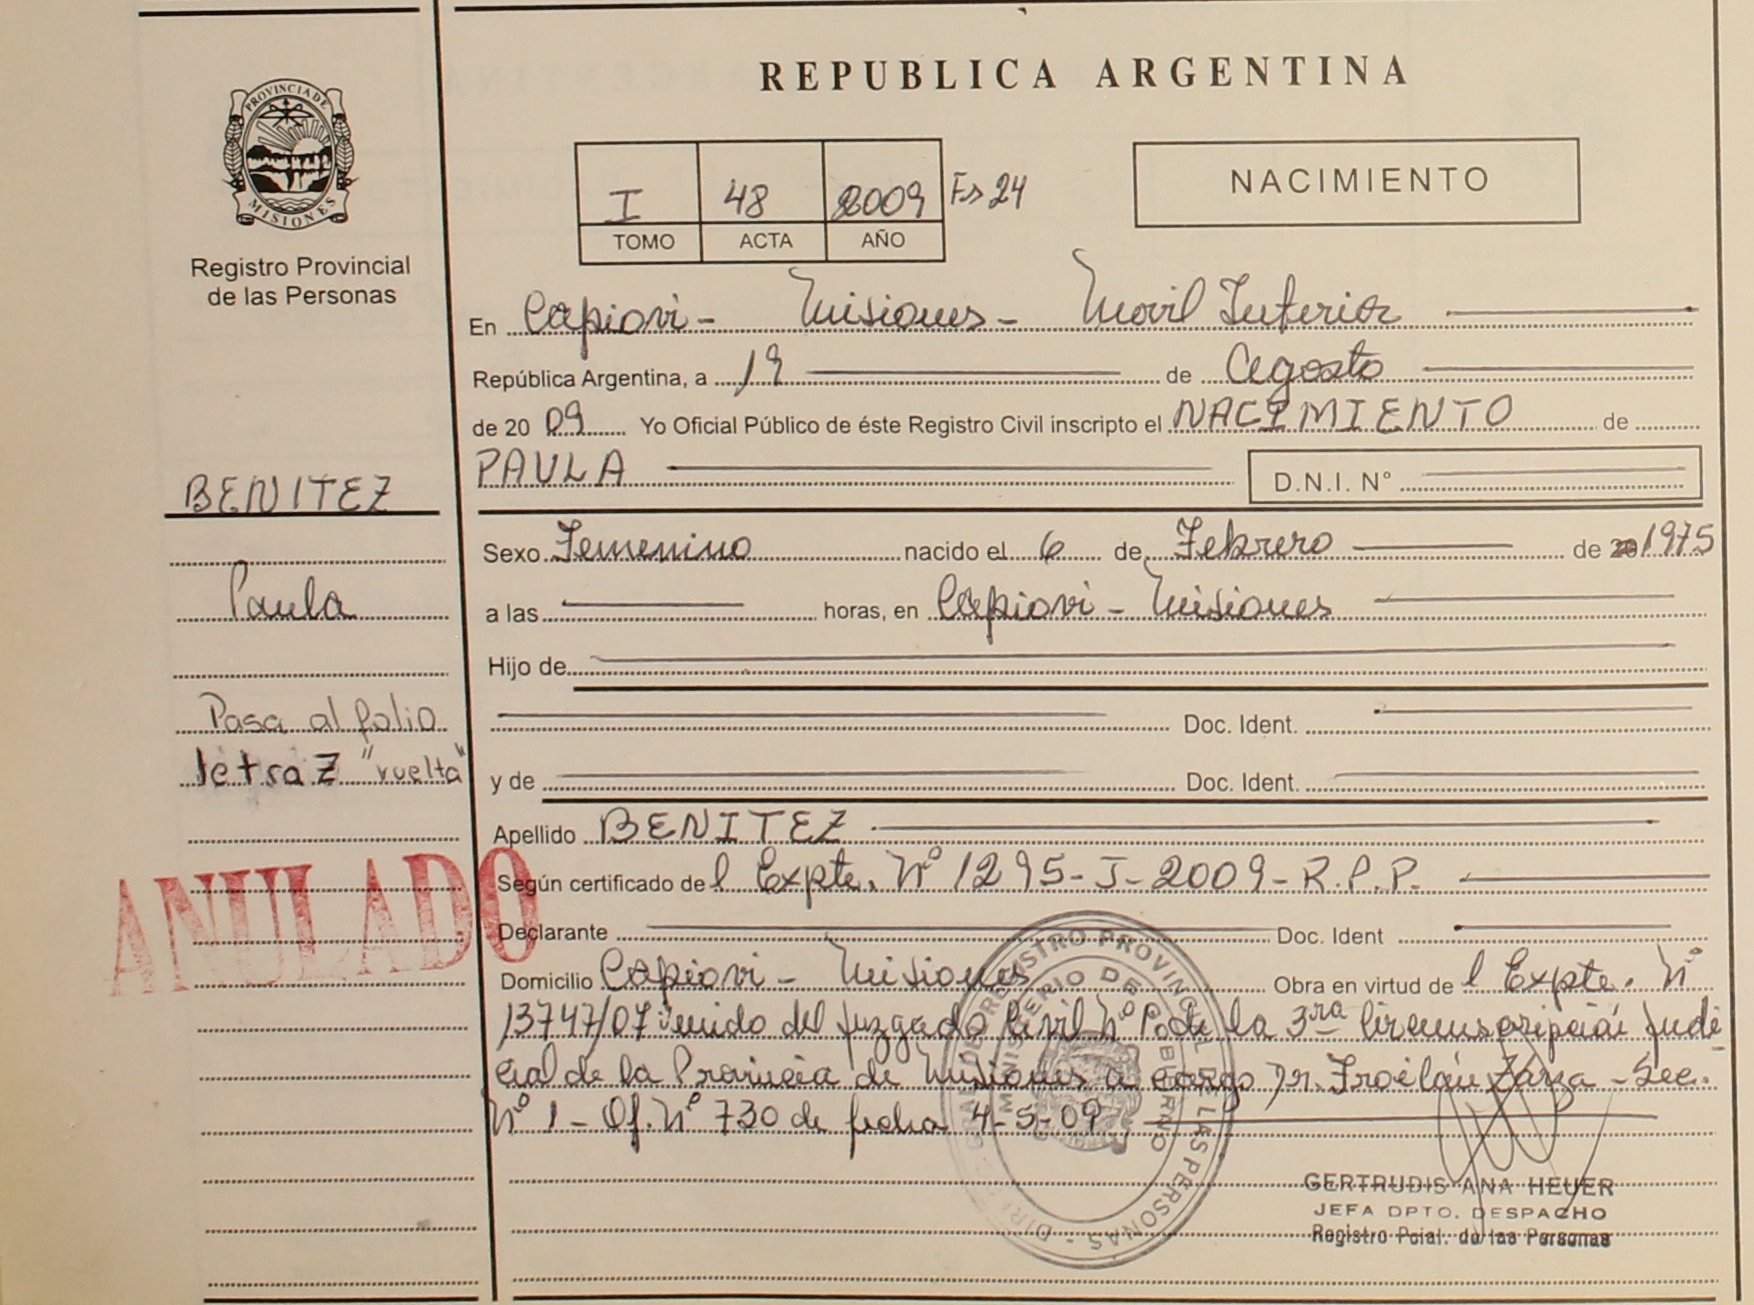 REPUBLICA ARGENTINA
PROVINCIA DE
MISIONES
Registro Provincial
de las Personas
I 48 2009 Fs 24
TOMO ACTA AÑO
NACIMIENTO
En Capiovi - Misiones - Movil Interior
República Argentina, a 19 de Agosto
de 2009 Yo Oficial Público de éste Registro Civil inscripto el NACIMIENTO de
PAULA D.N.I. N°
BENITEZ
Sexo Femenino nacido el 6 de Febrero de 20 1975
Paula
a las horas, en Capiovi - Misiones
Hijo de
Pasa al folio
Doc. Ident.
letra Z "vuelta"
y de Doc. Ident.
Apellido BENITEZ
ANULADO
Según certificado del Expte. N° 1295-J-2009-R.P.P.
Declarante Doc. Ident
Domicilio Capiovi - Misiones Obra en virtud del Expte. N°
13747/07 venido del Juzgado Civil N° 1 de la 3ra Circunscripción Judi
cial de la Provincia de Misiones a cargo Dr. Froilán Zarza - Sec.
N° 1 - Of. N° 730 de fecha 4-5-09
REGISTRO PROVINCIAL DE LAS PERSONAS
MINISTERIO DE GOBIERNO
GERTRUDIS ANA HEUER
JEFA DPTO. DESPACHO
Registro Pcial. de las Personas